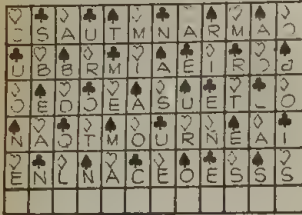 S A U T M N A R M A
U B B R M Y A E I R
E O E A S U E T L O
N A Q T M O U R N E A I
E N L N A C E O E S S S